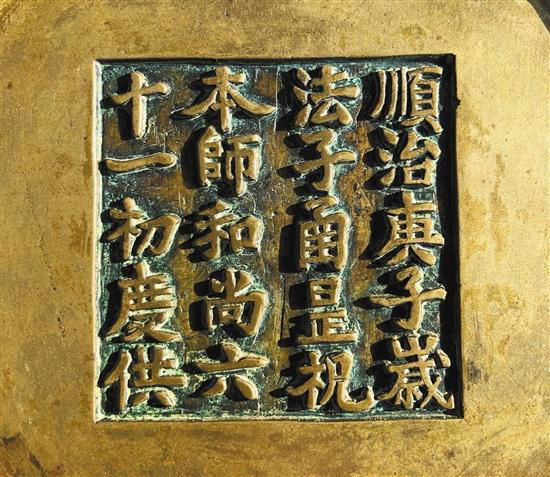 順治庚子歲
法子甬是祝
本師和尚六
十一初慶供